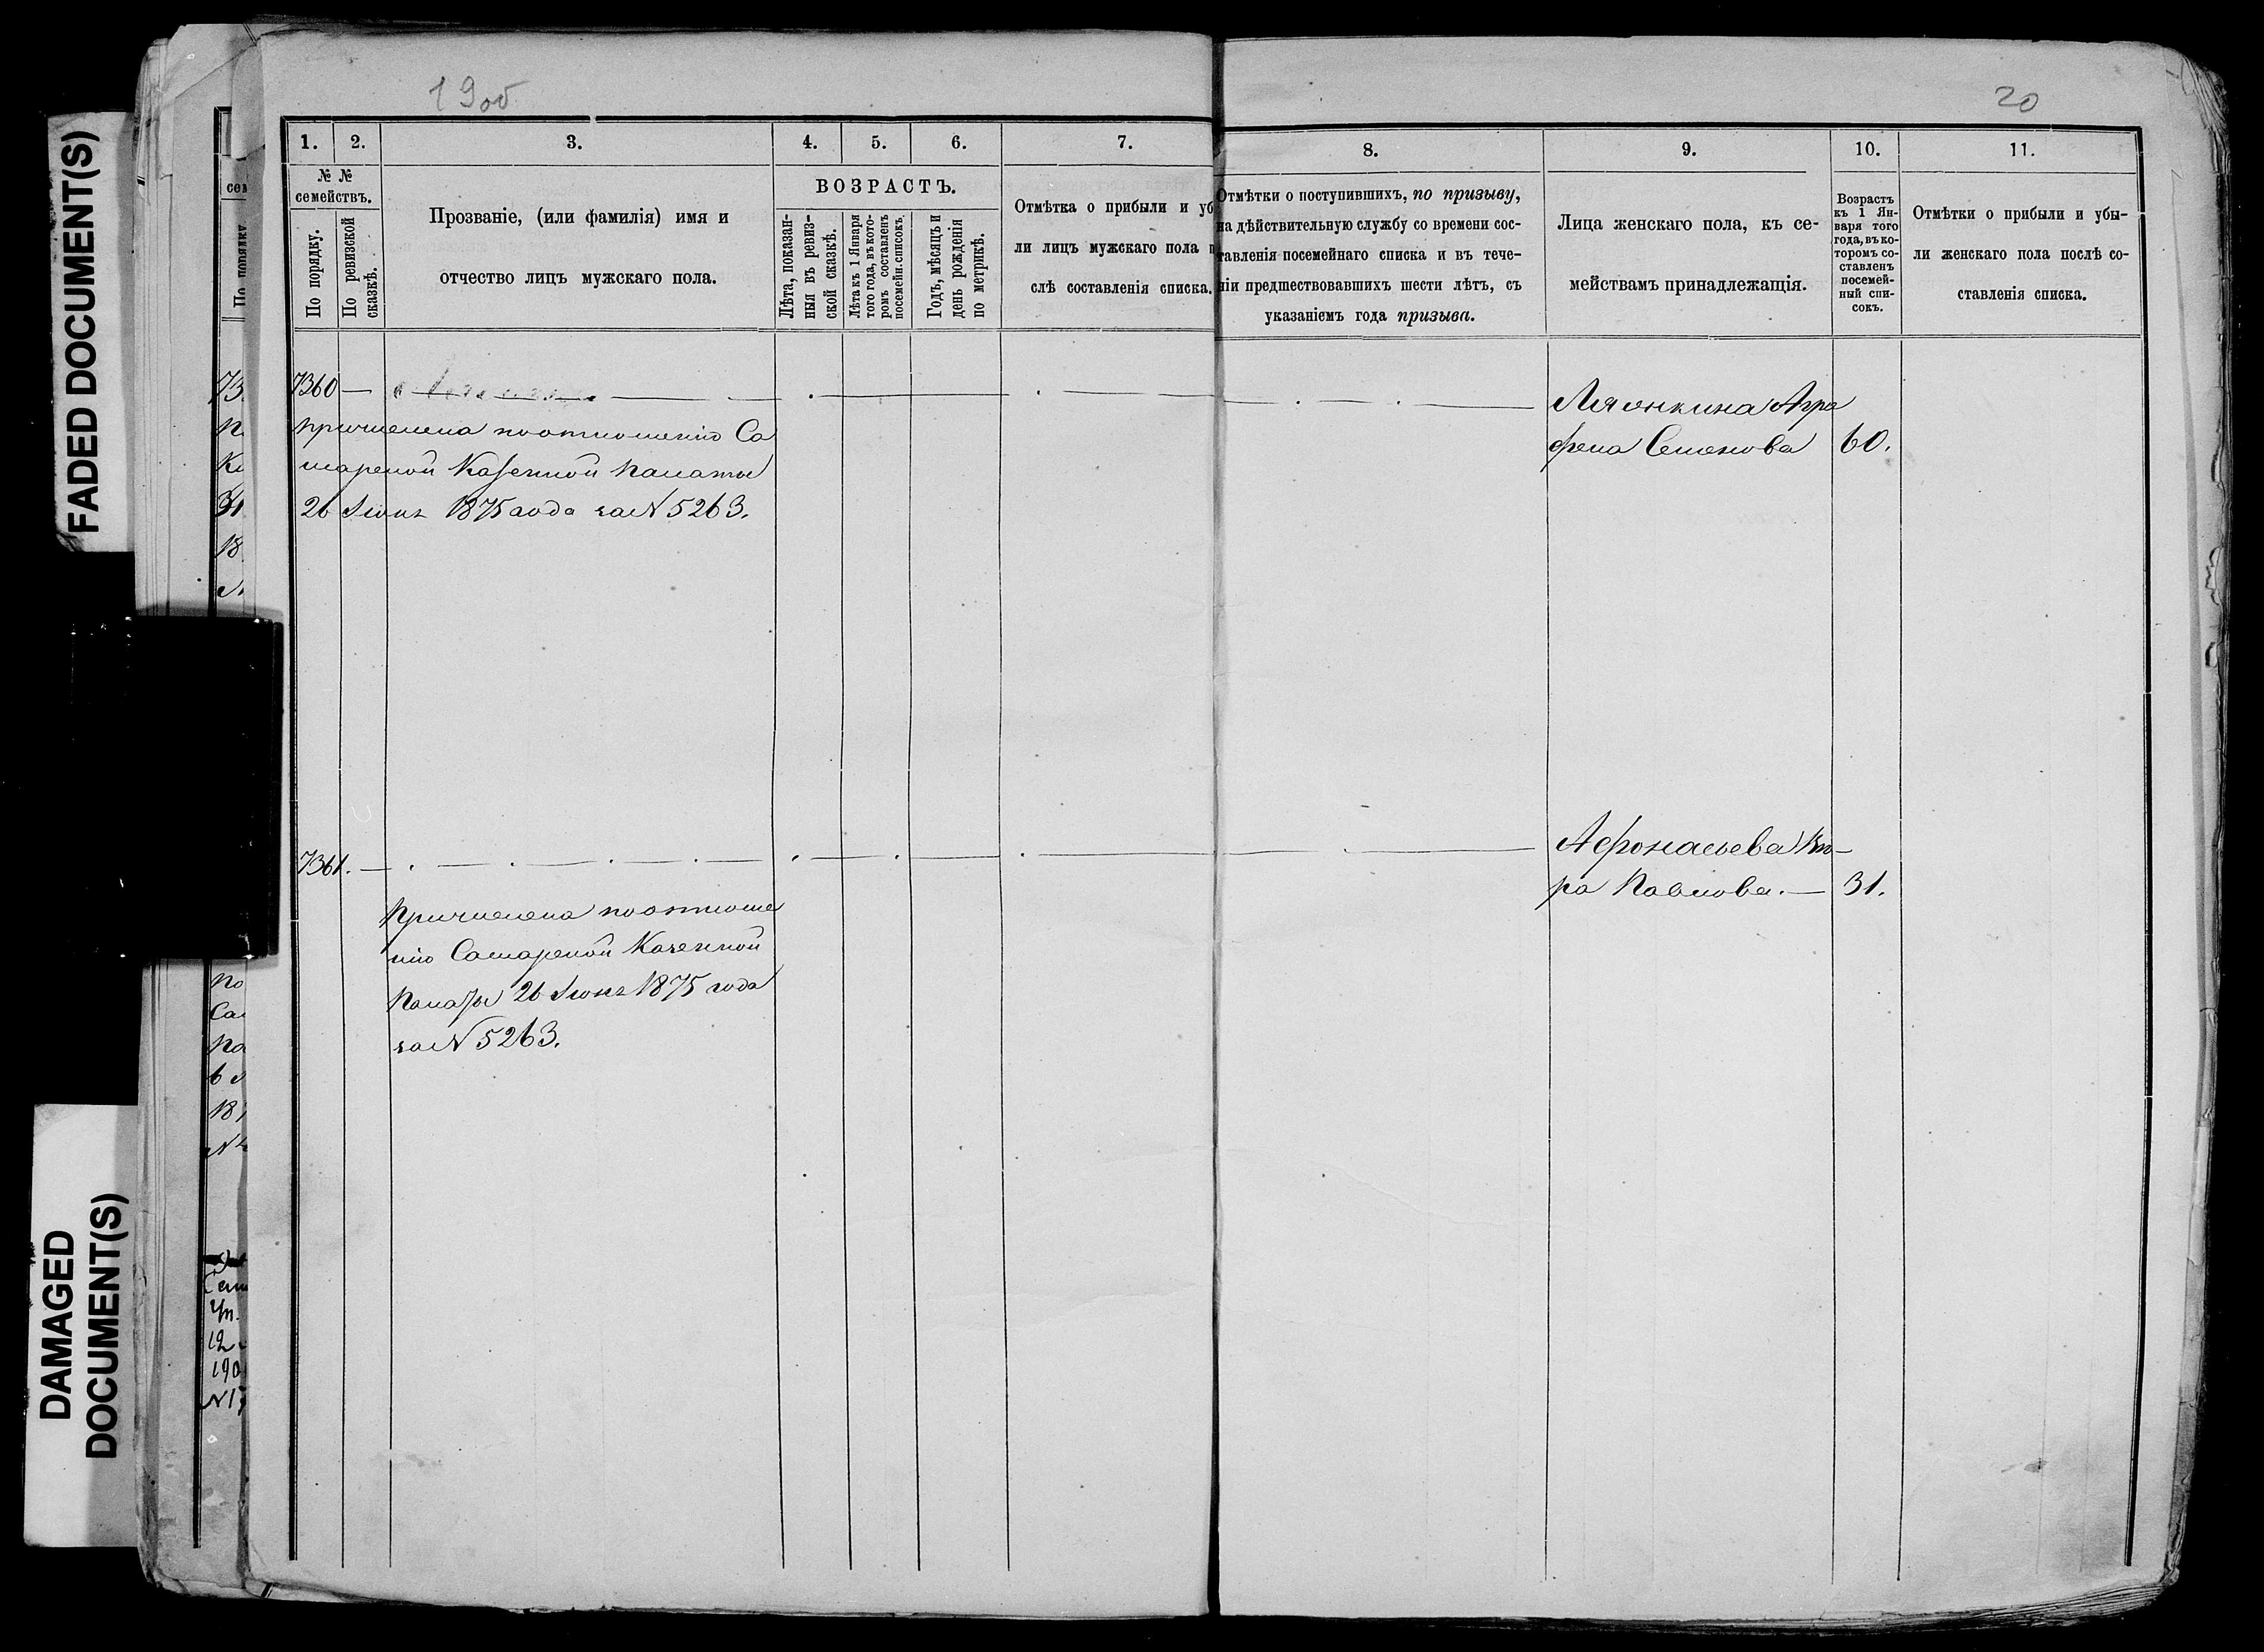 FADED DOCUMENT(S)
DAMAGED
DOCUMENT(S)
19об
20
1.
2.
3.
4.
5.
6.
7.
8.
9.
10.
11.
№ №
семействъ.
По порядку.
По ревизской
сказкѣ.
Прозваніе, (или фамилія) имя и
отчество лицъ мужскаго пола.
ВОЗРАСТЪ.
Лѣта, показан-
ныя въ ревиз-
ской сказкѣ.
Лѣта къ 1 Января
того года, въ кото-
ромъ составленъ
посемейн. списокъ.
Годъ, мѣсяцъ и
день рожденія
по метрикѣ.
Отмѣтка о прибыли и уб
ли лицъ мужскаго пола п
слѣ составленія списка.
Отмѣтки о поступившихъ, по призыву,
на дѣйствительную службу со времени сос-
тавленія посемейнаго списка и въ тече-
ніи предшествовавшихъ шести лѣтъ, съ
указаніемъ года призыва.
Лица женскаго пола, къ се-
мействамъ принадлежащія.
Возрастъ
къ 1 Ян-
варя того
года, въ ко-
торомъ со-
ставленъ
посемей-
ный спи-
сокъ.
Отмѣтки о прибыли и убы-
ли женскаго пола послѣ со-
ставленія списка.
7360 —
причислена по отношенію Са
марской Казенной палаты
26 Іюня 1875 года за № 5263.
Агра
фена Семенова 60.
7361. —
Причислена по отноше
нію Самарской Казенной
Палаты 26 Іюня 1875 года
за № 5263.
Афонасьева
ра Павлова. — 31.